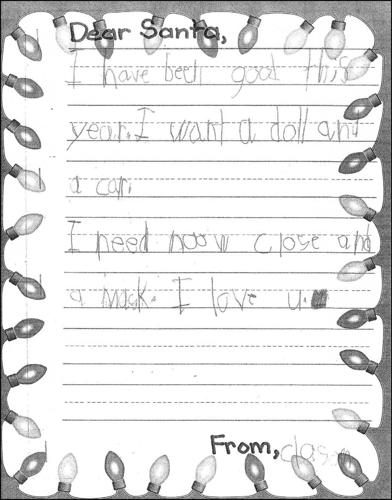 Dear Santa,
I have been good this
year. I want a doll and
a car.
I need noow close and
a mask. I love u.
From,